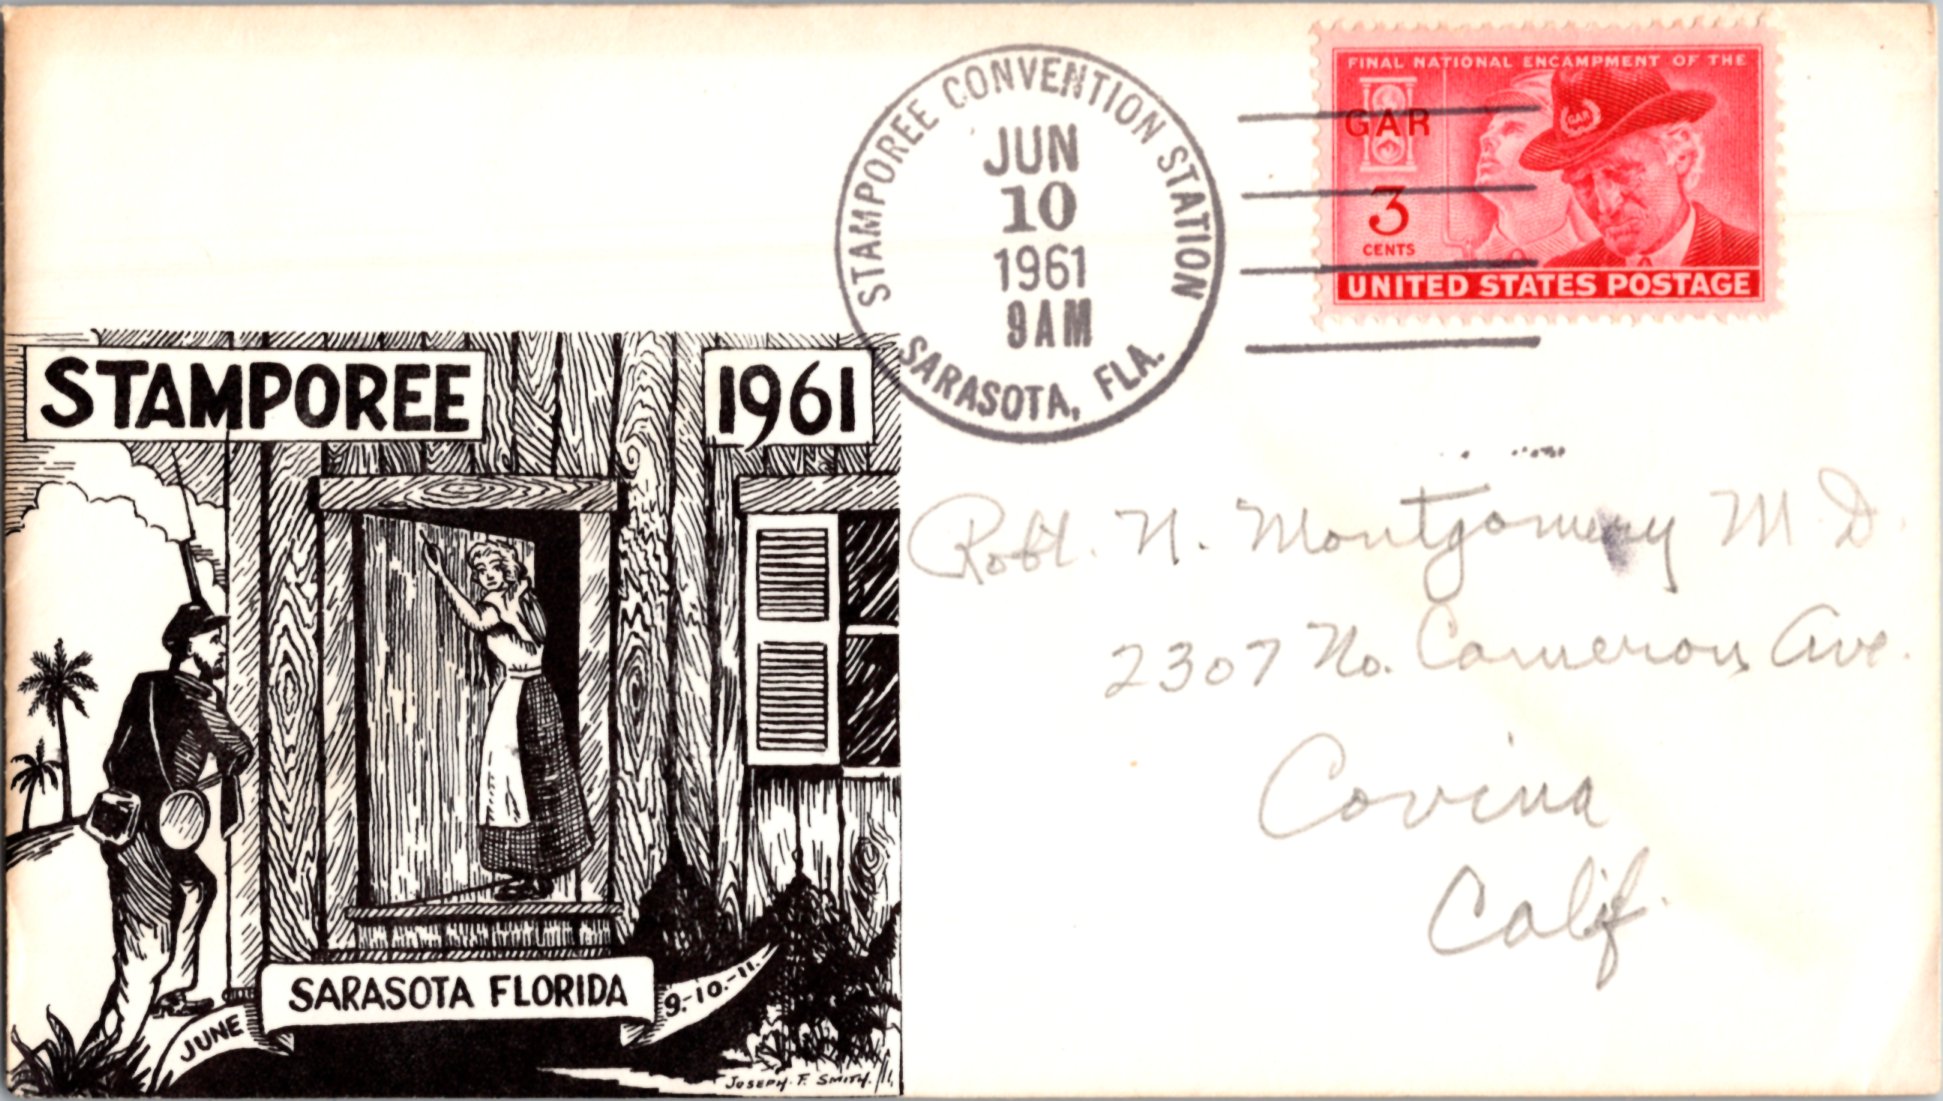 STAMPOREE CONVENTION STATION
JUN
10
1961
9AM
SARASOTA, FLA.
FINAL NATIONAL ENCAMPMENT OF THE
GAR
GAR
3
CENTS
UNITED STATES POSTAGE
STAMPOREE 1961
Robt. N. Montgomery M D.
2307 No. Cameron Ave.
Covina
Calif.
SARASOTA FLORIDA
JUNE 9-10-11-
JOSEPH. F. SMITH.